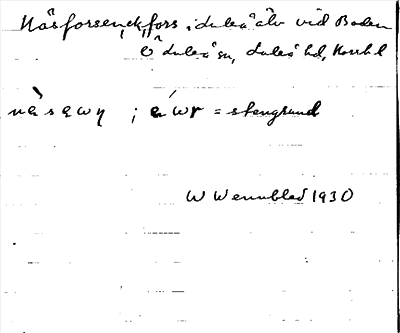 Näsforsen, ck, fors i Luleå älv vid Boden
Ö Luleå sn, Luleå hd, Norrb l
= stengrund
W Wennblad 1930